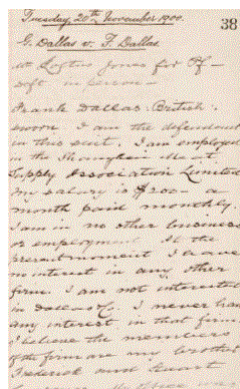 38
Tuesday 20th November 1900.
G. Dallas v. F. Dallas
Mr Loftus Jones for Pl-
Deft in person-
Frank Dallas. British.
sworn. I am the defendant
in this suit. I am employed
in the Shanghai Meat
Supply Association Limited
my salary is $200 - a
month paid monthly.
I am in no other business
or employment. At the
present moment I have
no interest in any other
firm. I am not interested
in Dallas & Co. I never had
any interest in that firm
I believe the members
of the firm are my brother
Frederick and Stuart